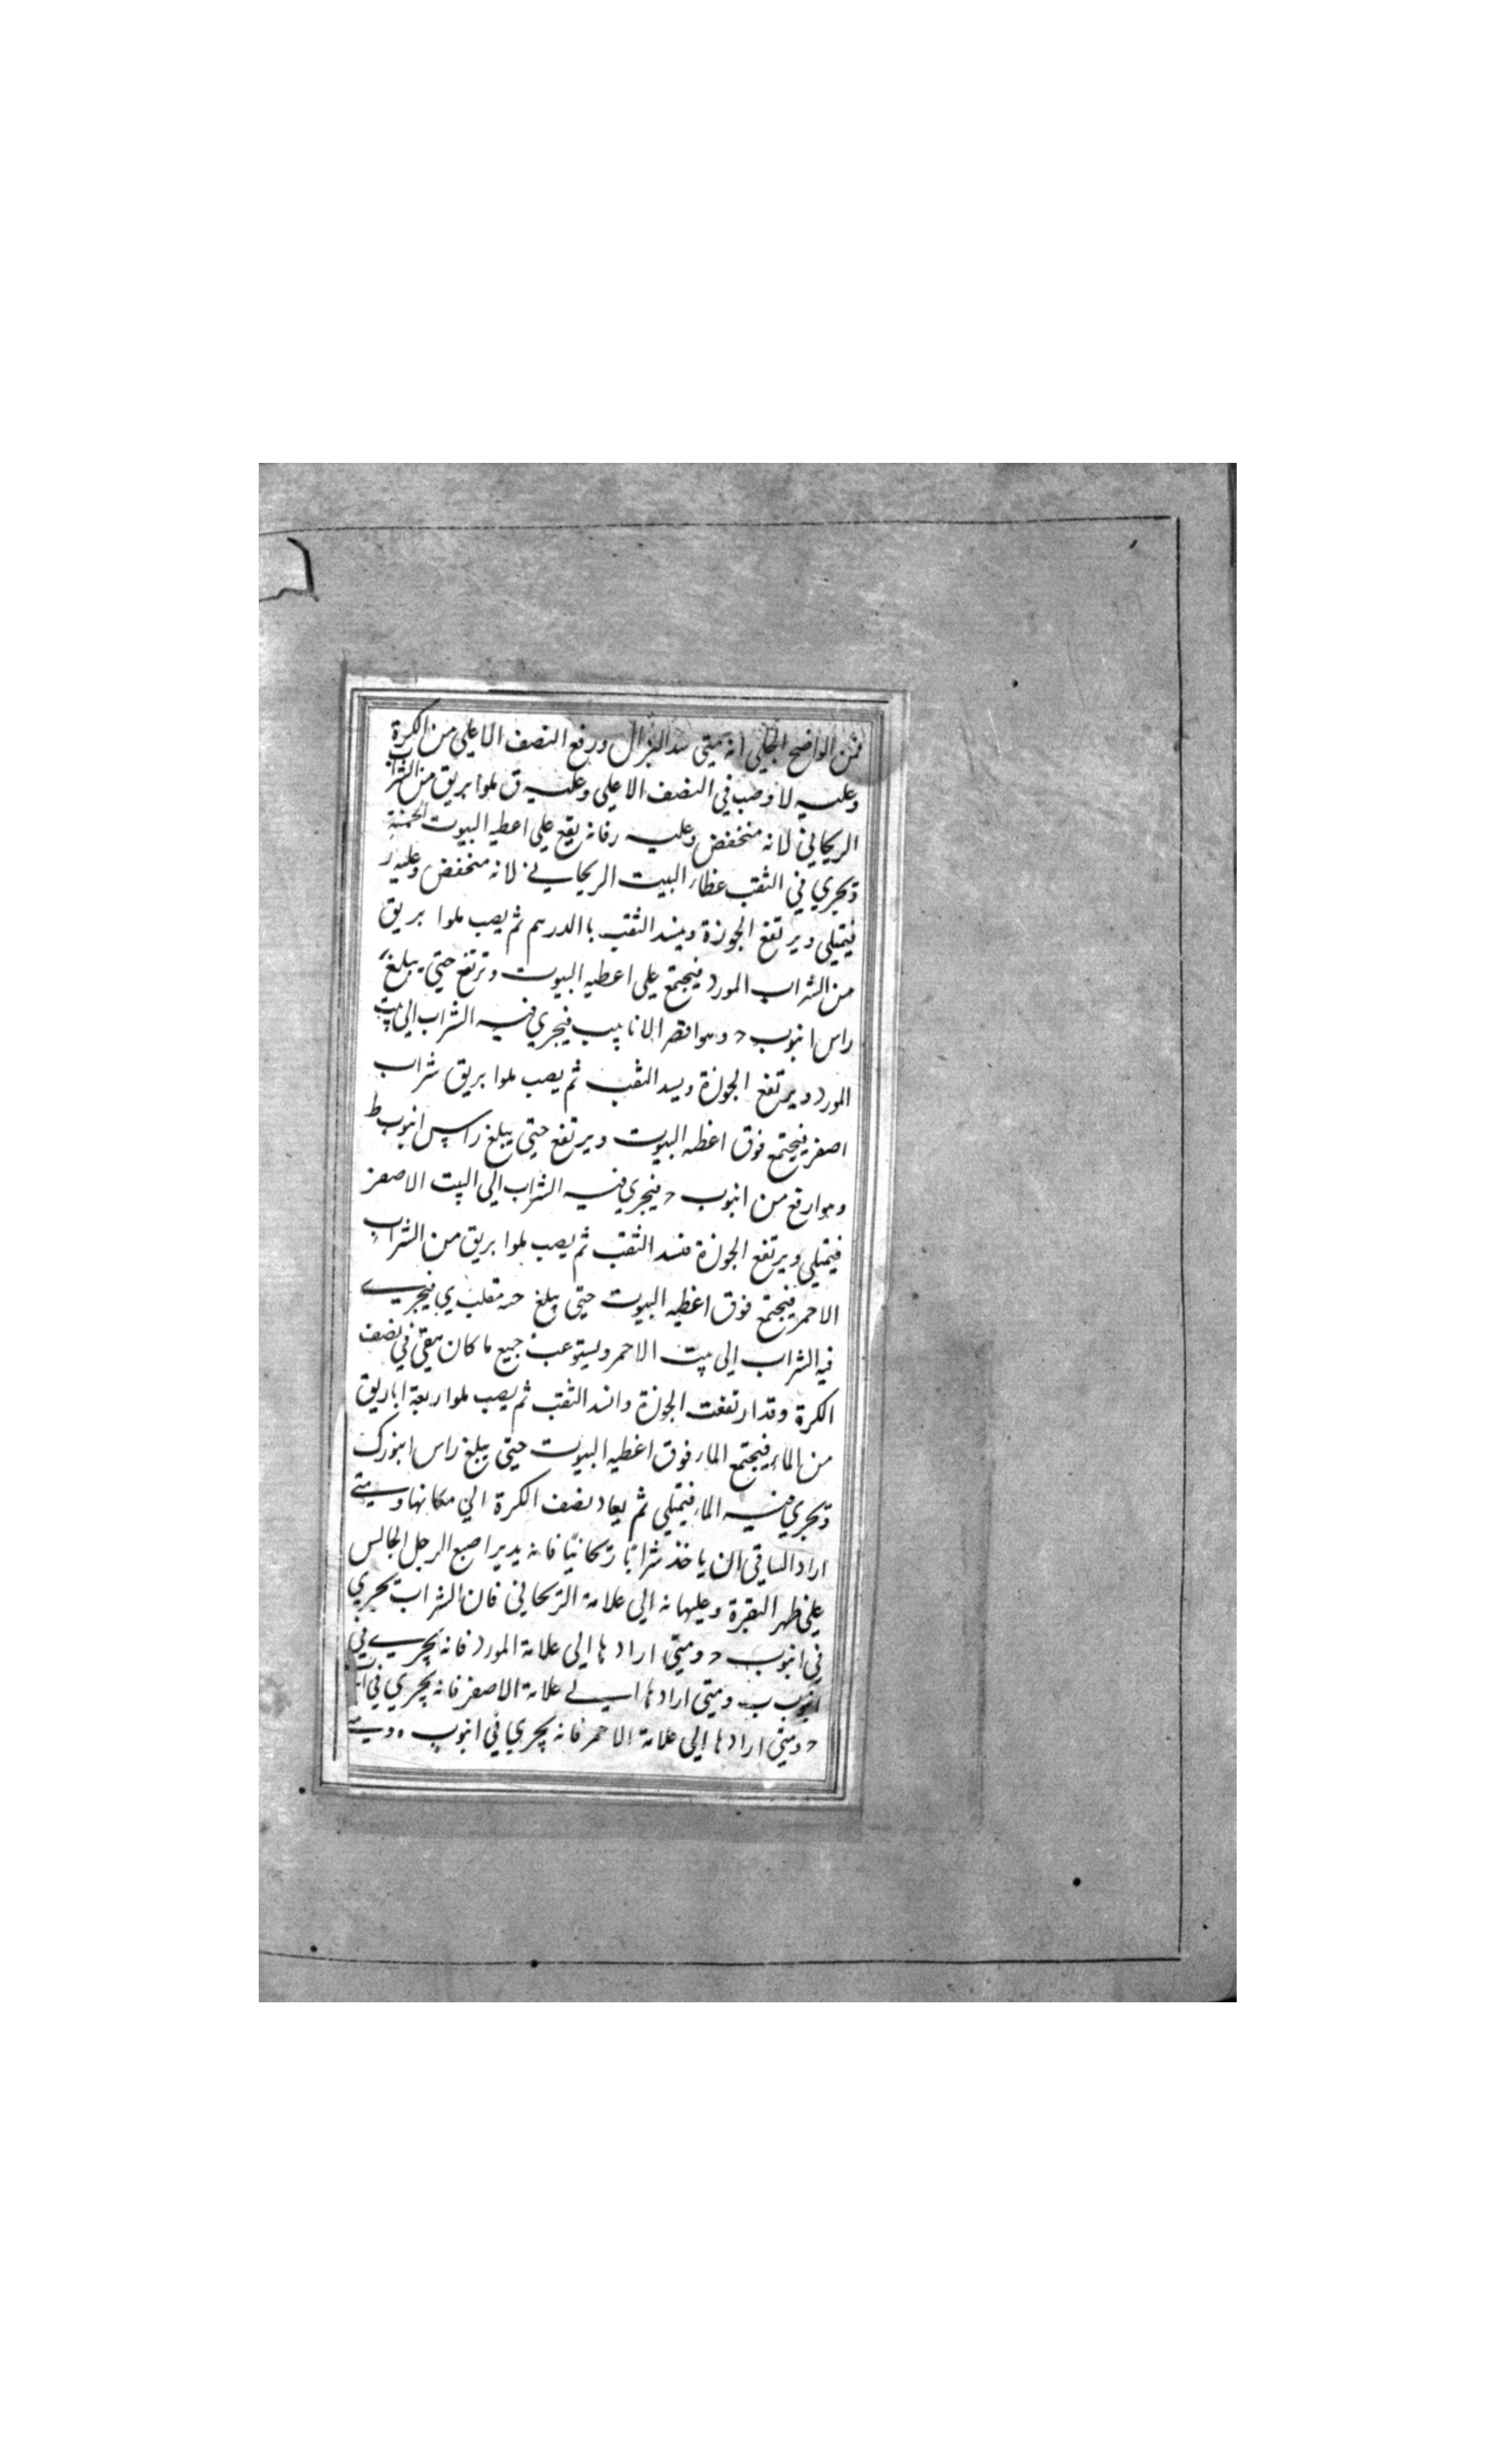 فمن الواضح الجلي انه متي سد البزال ورفع النصف الاعلي من الكرة
وعليه لا وصب في النصف الاعلي وعليه ق ملوا بريق من الشراب
الريحاني لانه منخفض وعليه ر فانه يقع علي اعطيه البيوت الخمسة
ويجري في الثقب عظاء البيت الريحاني لانه منخفض وعليه ر
فيمتلي ويرتفع الجوزة ويسد الثقب باالدرهم ثم يصب ملوا بريق
من الشراب المورد فيجتمع علي اعطيه البيوت وترتفع حتي يبلغ
راس انبوب د وهو اقصر الانابيب فيجري فيه الشراب الي بيت
المورد ويرتفع الجوزة ويسد الثقب ثم يصب ملوا بريق شراب
اصفر فيجتمع فوق اغطيه البيوت ويرتفع حتي يبلغ راس انبوب ط
وهو ارفع من انبوب د فيجري فيه الشراب الي البيت الاصفر
فيمتلي ويرتفع الجوزة فسد الثقب ثم يصب ملوا بريق من الشراب
الاحمر فيجتمع فوق اغطيه البيوت حتي يبلغ مقلب ي فيجري
فيه الشراب الي بيت الاحمر ويستوعب جميع ما كان يبقي في نصف
الكرة وقد ارتفعت الجوزة وانسد الثقب ثم يصب ملوا ربعة اباريق
من الماء فيجتمع الماء فوق اغطيه البيوت حتي يبلغ راس انبوب ك
ويجري فيه الماء فيمتلي ثم يعاد نصف الكرة الي مكانها ومتي
اراد الساقي ان ياخذ شرابًا ريحانيًا فانه يدير اصبع الرجل الجالس
علي ظهر البقرة وعليها نه الي علامة الريحاني فان الشراب يجري
في انبوب د ومتي ارادها الي علامة المورد فانه يجري في
انبوب ب ومتي ارادها الي علامة الاصفر فانه يجري في
د ومتي ارادها الي علامة الاحمر فانه يجري في انبوب ه ومتي